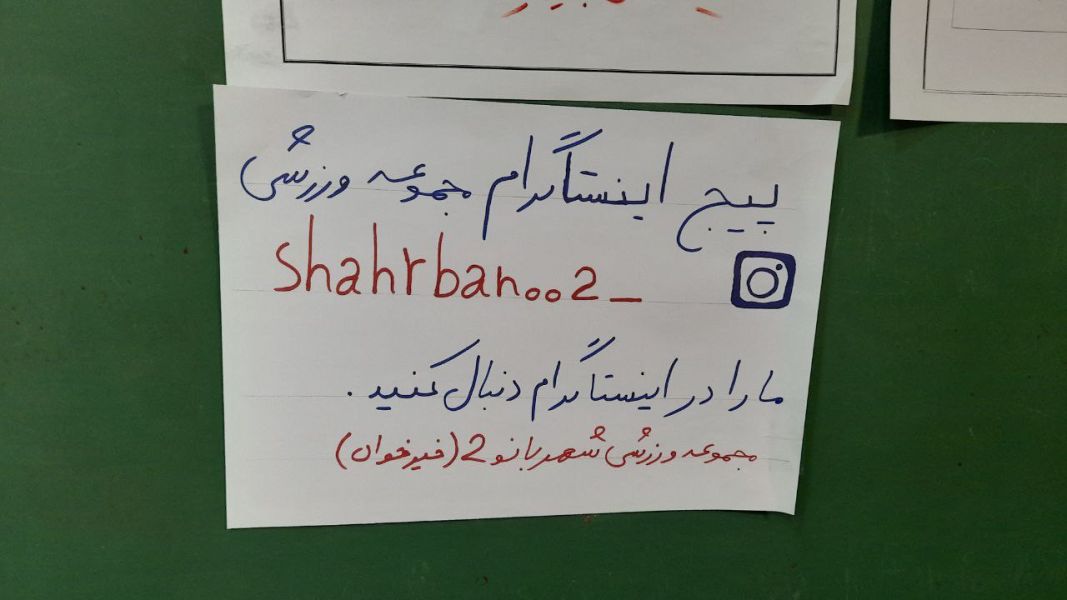 پیج اینستاگرام مجموعه ورزشی
Shahrbanoo2_
ما را در اینستاگرام دنبال کنید.
مجموعه ورزشی شهربانو 2 (خیرخوان)